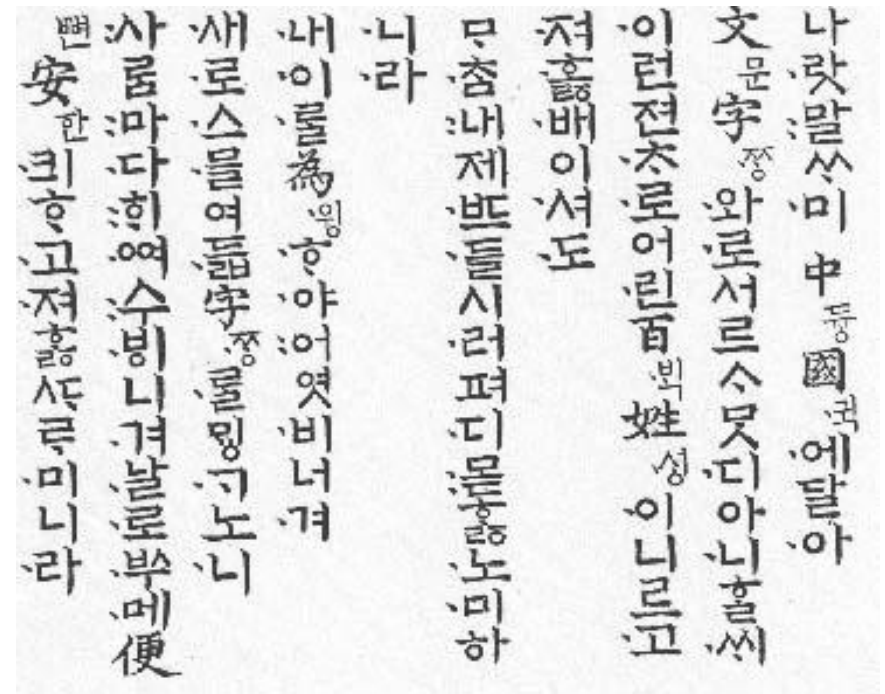 나·랏:말ᄊᆞ·미中듕國·귁·에달·아
文문字·ᄍᆞᆼ·와·로서르ᄉᆞᄆᆞᆺ·디아·니ᄒᆞᆯ·ᄊᆡ
·이런젼·ᄎᆞ·로어·린百·ᄇᆡᆨ姓·셩·이니르·고
·져·ᄒᆞᇙ·배이·셔·도
ᄆᆞ·ᄎᆞᆷ:내제·ᄠᅳ·들시·러펴·디:몯ᄒᆞᇙ·노·미하
·니·라
·내·이·ᄅᆞᆯ為·윙·ᄒᆞ·야:어엿·비너·겨
·새·로·스·믈여·듧字·ᄍᆞᆼ·ᄅᆞᆯᄆᆡᇰ·ᄀᆞ노·니
:사ᄅᆞᆷ:마·다:ᄒᆡ·ᅇᅧ:수·ᄫᅵ니·겨·날·로·ᄡᅮ·메便
뼌安한·킈ᄒᆞ·고·져ᄒᆞᇙᄯᆞᄅᆞ·미니·라